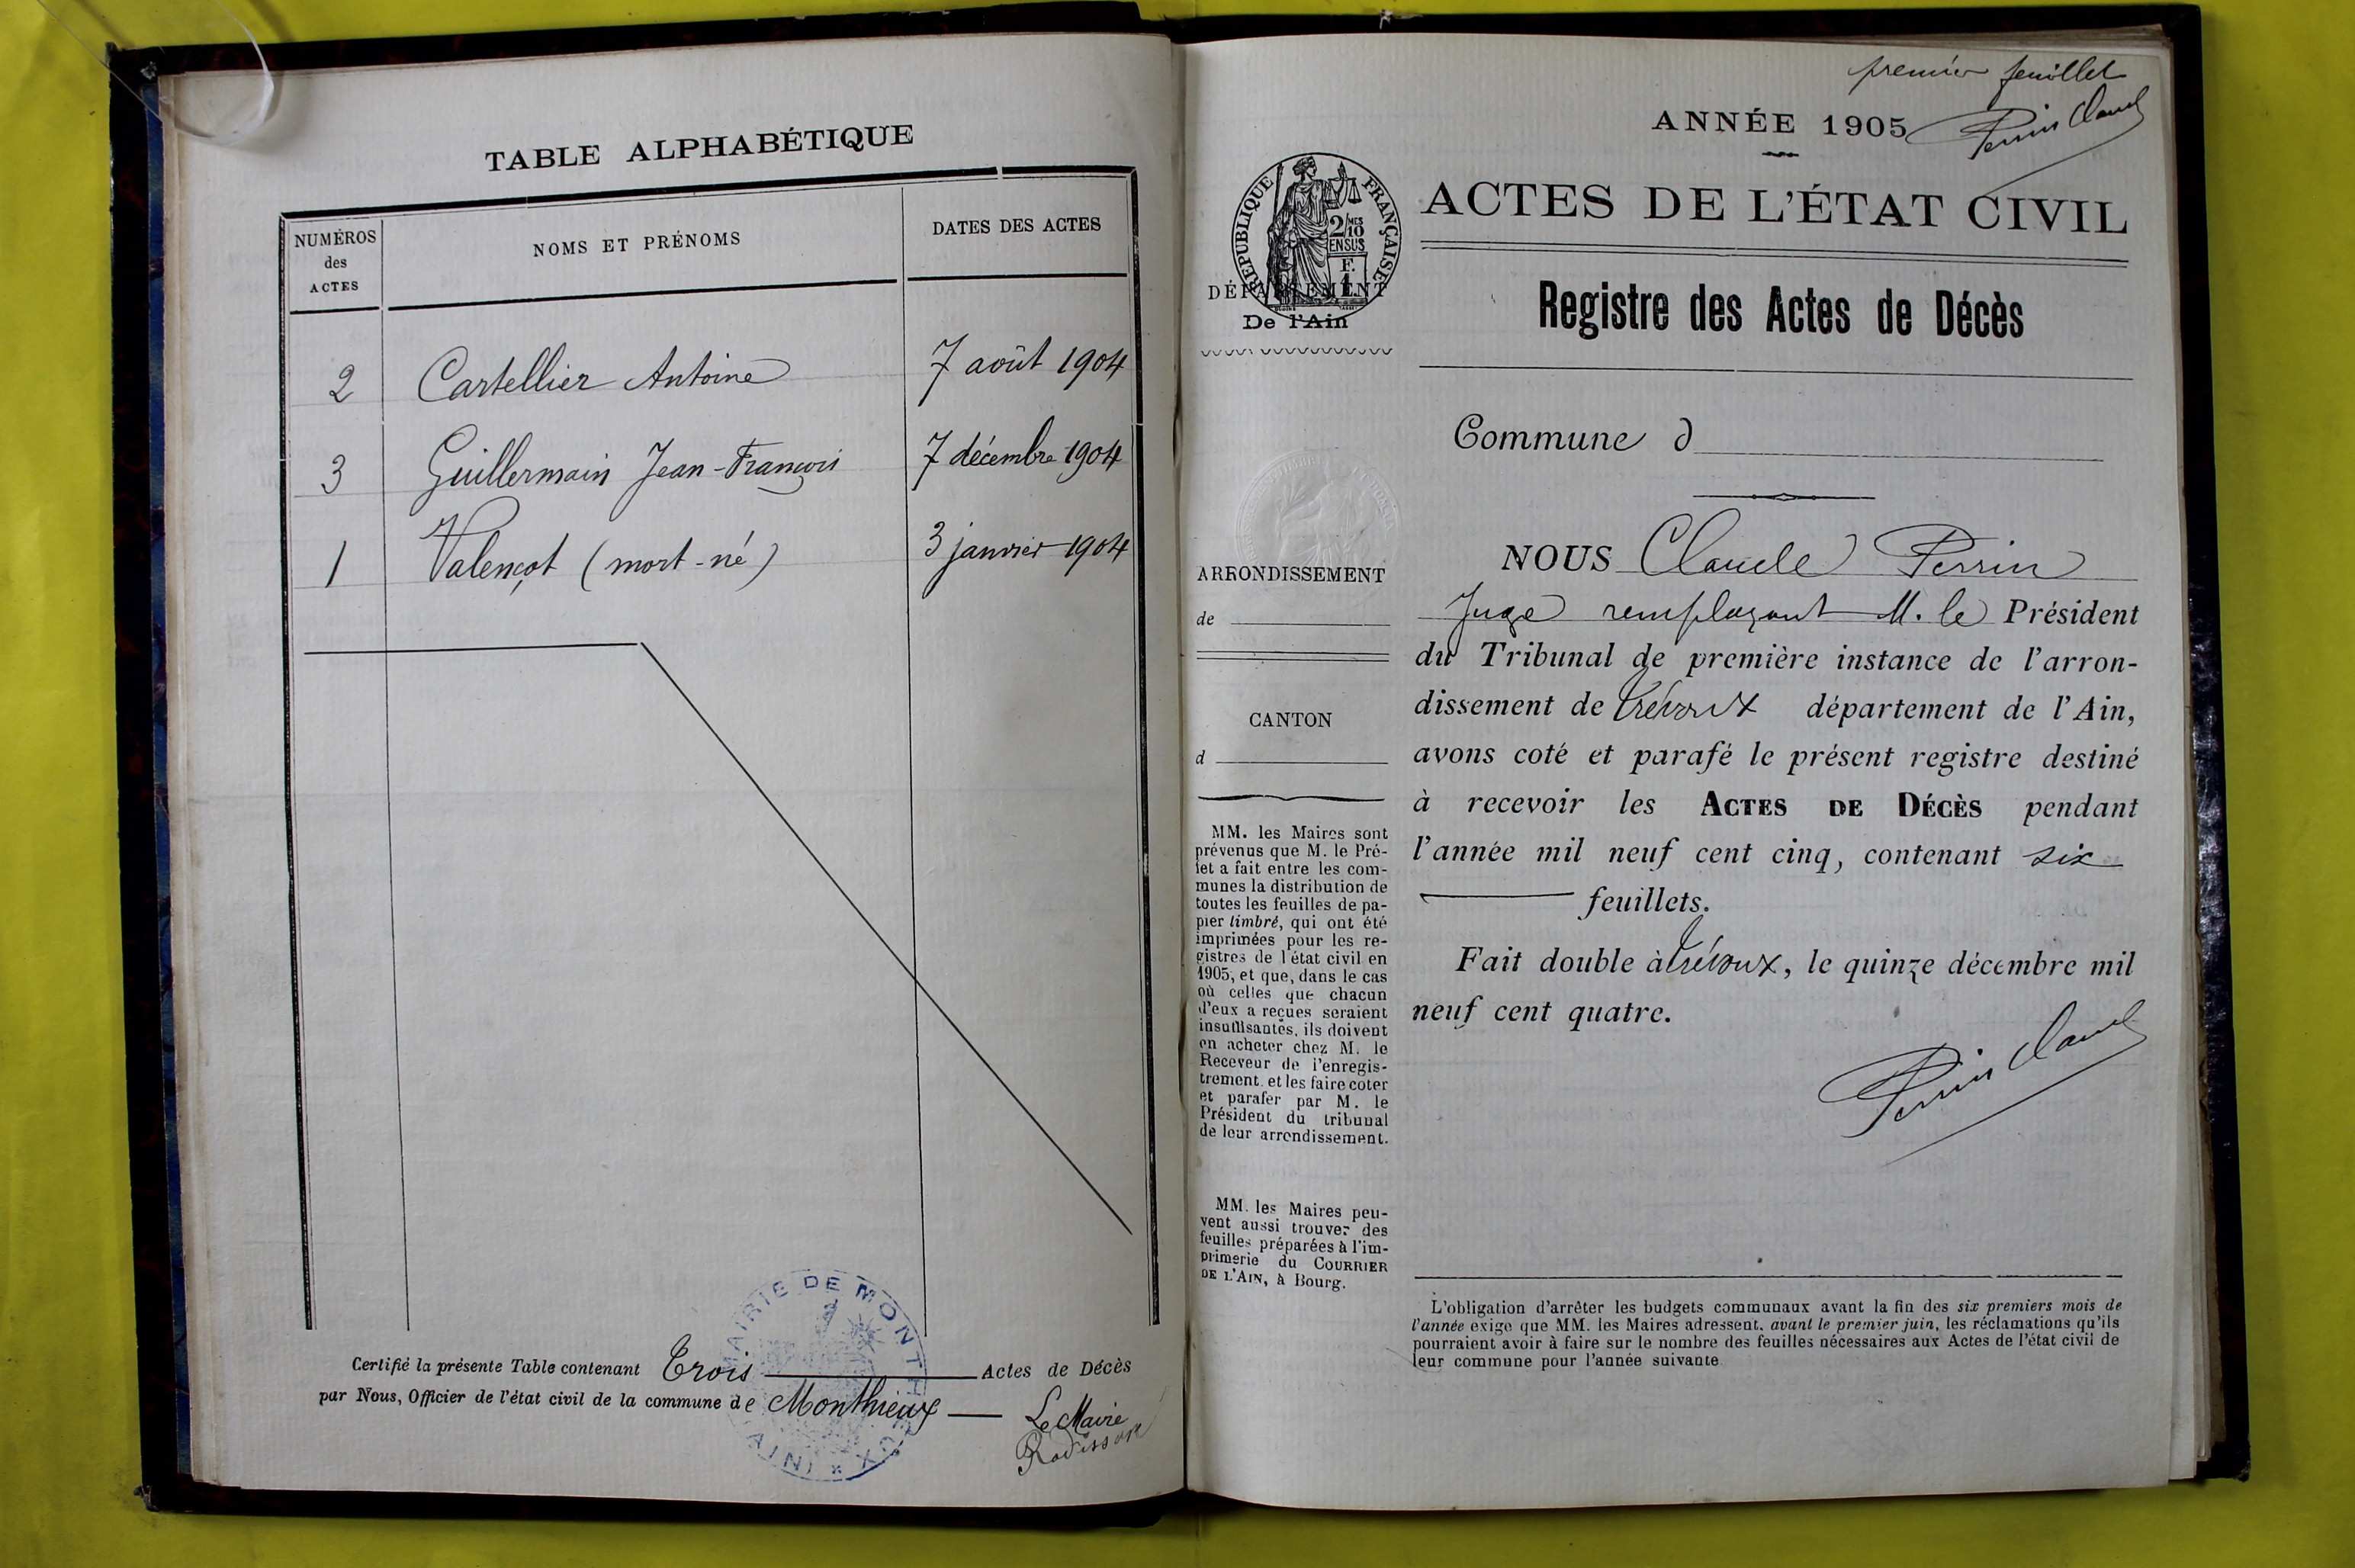 TABLE ALPHABÉTIQUE
NUMÉROS
des
ACTES
NOMS ET PRÉNOMS
DATES DES ACTES
2 Cartellier Antoine 7 août 1904
3 Guillermain Jean-François 7 décembre 1904
1 Valençot (mort-né) 3 janvier 1904
Certifié la présente Table contenant Trois Actes de Décès
par Nous, Officier de l'état civil de la commune de Monthieux
Le Maire
Rodisson
MAIRIE DE MONTHIEUX
(AIN)
premier feuillet
ANNÉE 1905
Perrin Claude
ACTES DE L'ÉTAT CIVIL
RÉPUBLIQUE FRANÇAISE
2/MES
10
EN SUS
F.
1
DÉPARTEMENT
De l'Ain
Registre des Actes de Décès
Commune d
ARRONDISSEMENT
de
CANTON
d
MM. les Maires sont
prévenus que M. le Pré-
fet a fait entre les com-
munes la distribution de
toutes les feuilles de pa-
pier timbré, qui ont été
imprimées pour les re-
gistres de l'état civil en
1905, et que, dans le cas
où celles que chacun
d'eux a reçues seraient
insuffisantes, ils doivent
en acheter chez M. le
Receveur de l'enregis-
trement. et les faire coter
et parafer par M. le
Président du tribunal
de leur arrondissement.
MM. les Maires peu-
vent aussi trouver des
feuilles préparées à l'im-
primerie du COURRIER
DE L'AIN, à Bourg.
NOUS Claude Perrin
Juge remplaçant M. le Président
du Tribunal de première instance de l'arron-
dissement de Trévoux département de l'Ain,
avons coté et parafé le présent registre destiné
à recevoir les ACTES DE DÉCÈS pendant
l'année mil neuf cent cinq, contenant six
feuillets.
Fait double à Trévoux, le quinze décembre mil
neuf cent quatre.
Perrin Claude
L'obligation d'arrêter les budgets communaux avant la fin des six premiers mois de
l'année exige que MM. les Maires adressent, avant le premier juin, les réclamations qu'ils
pourraient avoir à faire sur le nombre des feuilles nécessaires aux Actes de l'état civil de
leur commune pour l'année suivante